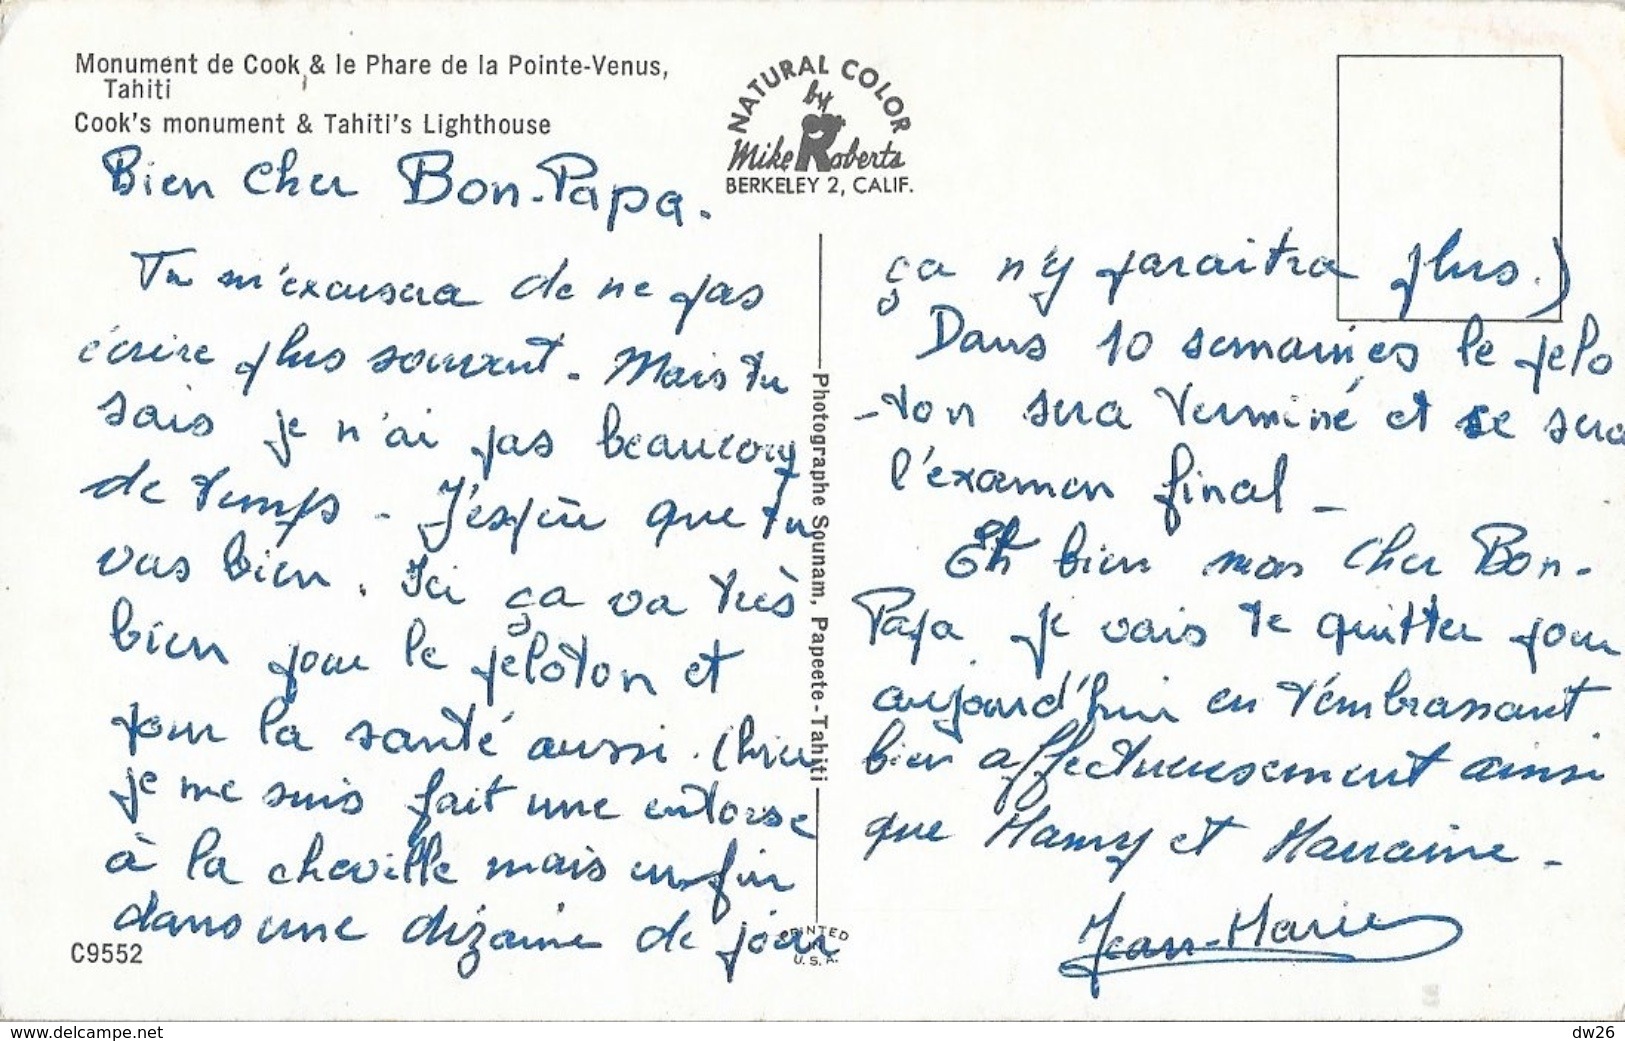 Monument de Cook & le Phare de la Pointe-Venus,
Tahiti
Cook's monument & Tahiti's Lighthouse
NATURAL COLOR
by
Mike Roberts
BERKELEY 2, CALIF.
Bien cher Bon-Papa.
Tu m'excusera de ne pas
écrire plus souvent. Mais tu
sais je n'ai pas beaucoup
de temps - J'espère que tu
vas bien. Ici ça va très
bien pour le peloton et
pour la santé aussi. (hier
je me suis fait une entorse
à la cheville mais enfin
dans une dizaine de jour
ça n'y paraitra plus.)
Dans 10 semaines le pelo
-ton sera terminé et se sera
l'examen final -
Eh bien mon cher Bon-
Papa je vais te quitter pour
aujourd'hui en t'embrassant
bien affectueusement ainsi
que Mamy et Marraine -
Jean-Marie
Photographe Sounam, Papeete - Tahiti
C9552
PRINTED
U.S.A.
www.delcampe.net
dw26